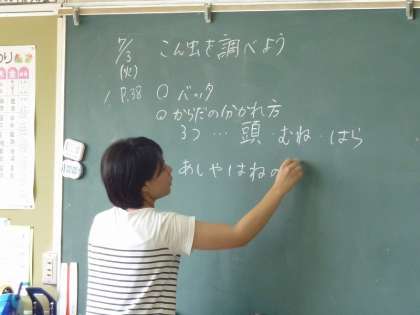 7/3
(火)
こん虫を調べよう
P.38 ○ バッタ
○ からだの分かれ方
3つ … 頭・むね・はら
あしやはねの